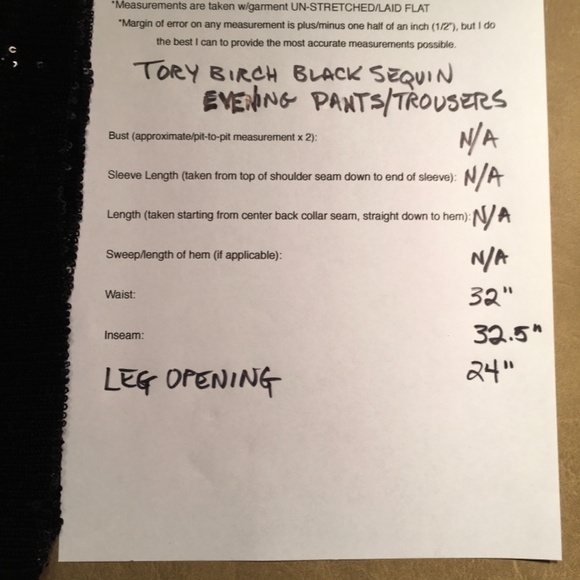 *Measurements are taken w/garment UN-STRETCHED/LAID FLAT
*Margin of error on any measurement is plus/minus one half of an inch (1/2"), but I do
the best I can to provide the most accurate measurements possible.
TORY BIRCH BLACK SEQUIN
EVENING PANTS/TROUSERS
Bust (approximate/pit-to-pit measurement x 2): N/A
Sleeve Length (taken from top of shoulder seam down to end of sleeve): N/A
Length (taken starting from center back collar seam, straight down to hem): N/A
Sweep/length of hem (if applicable): N/A
Waist: 32"
Inseam: 32.5"
LEG OPENING 24"